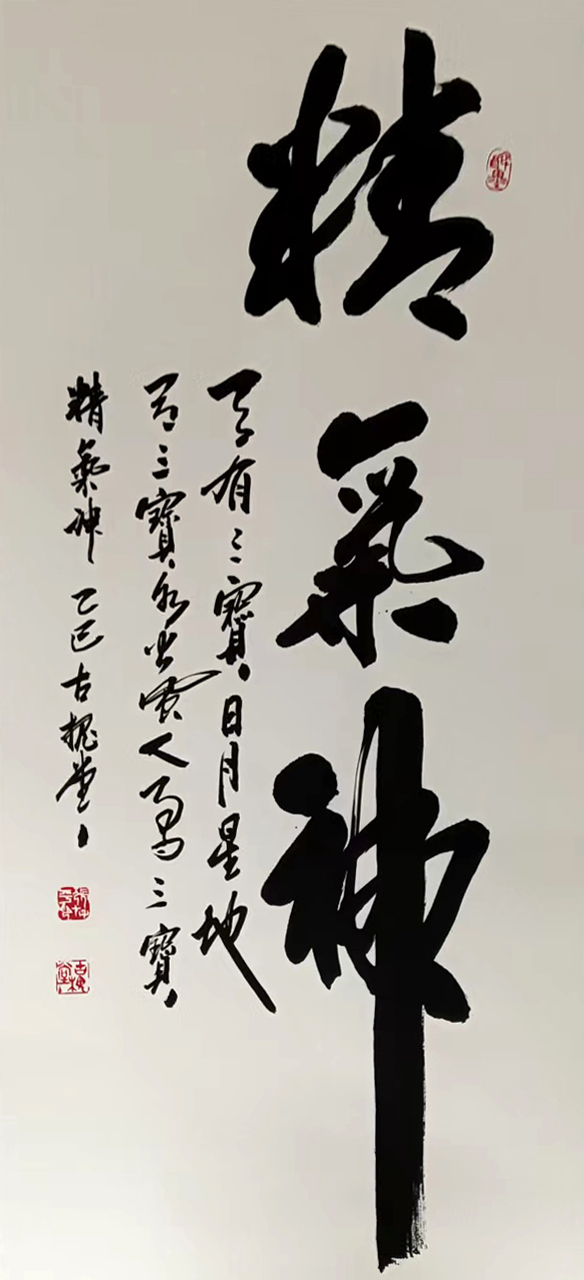 精氣神
天有三寶日月星地
有三寶水火風人有三寶
精氣神乙巳古槐堂
古槐堂